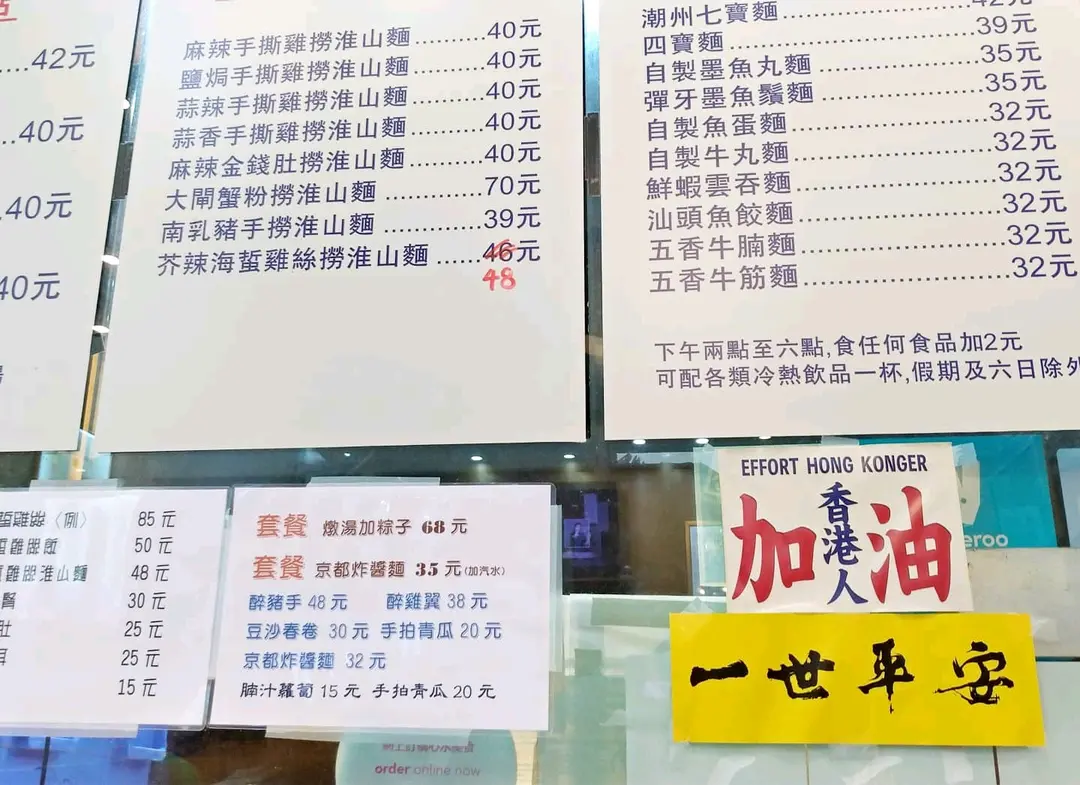 42元
40元
40元
40元
麻辣手撕雞撈淮山麵.........40元
鹽焗手撕雞撈淮山麵.........40元
蒜辣手撕雞撈淮山麵.........40元
蒜香手撕雞撈淮山麵.........40元
麻辣金錢肚撈淮山麵.........40元
大閘蟹粉撈淮山麵............70元
南乳豬手撈淮山麵............39元
芥辣海蜇雞絲撈淮山麵......46元
48
潮州七寶麵........................42元
四寶麵...............................39元
自製墨魚丸麵.....................35元
彈牙墨魚鬚麵.....................35元
自製魚蛋麵........................32元
自製牛丸麵........................32元
鮮蝦雲吞麵........................32元
汕頭魚餃麵........................32元
五香牛腩麵........................32元
五香牛筋麵........................32元
下午兩點至六點,食任何食品加2元
可配各類冷熱飲品一杯,假期及六日除外
〈例〉 85元
50元
淮山麵 48元
腎 30元
肚 25元
25元
15元
套餐 燉湯加粽子 68元
套餐 京都炸醬麵 35元(加汽水)
醉豬手48元 醉雞翼38元
豆沙春卷 30元 手拍青瓜20元
京都炸醬麵 32元
腩汁蘿蔔15元 手拍青瓜20元
EFFORT HONG KONGER
加香港人油
一世平安
eroo
order online now